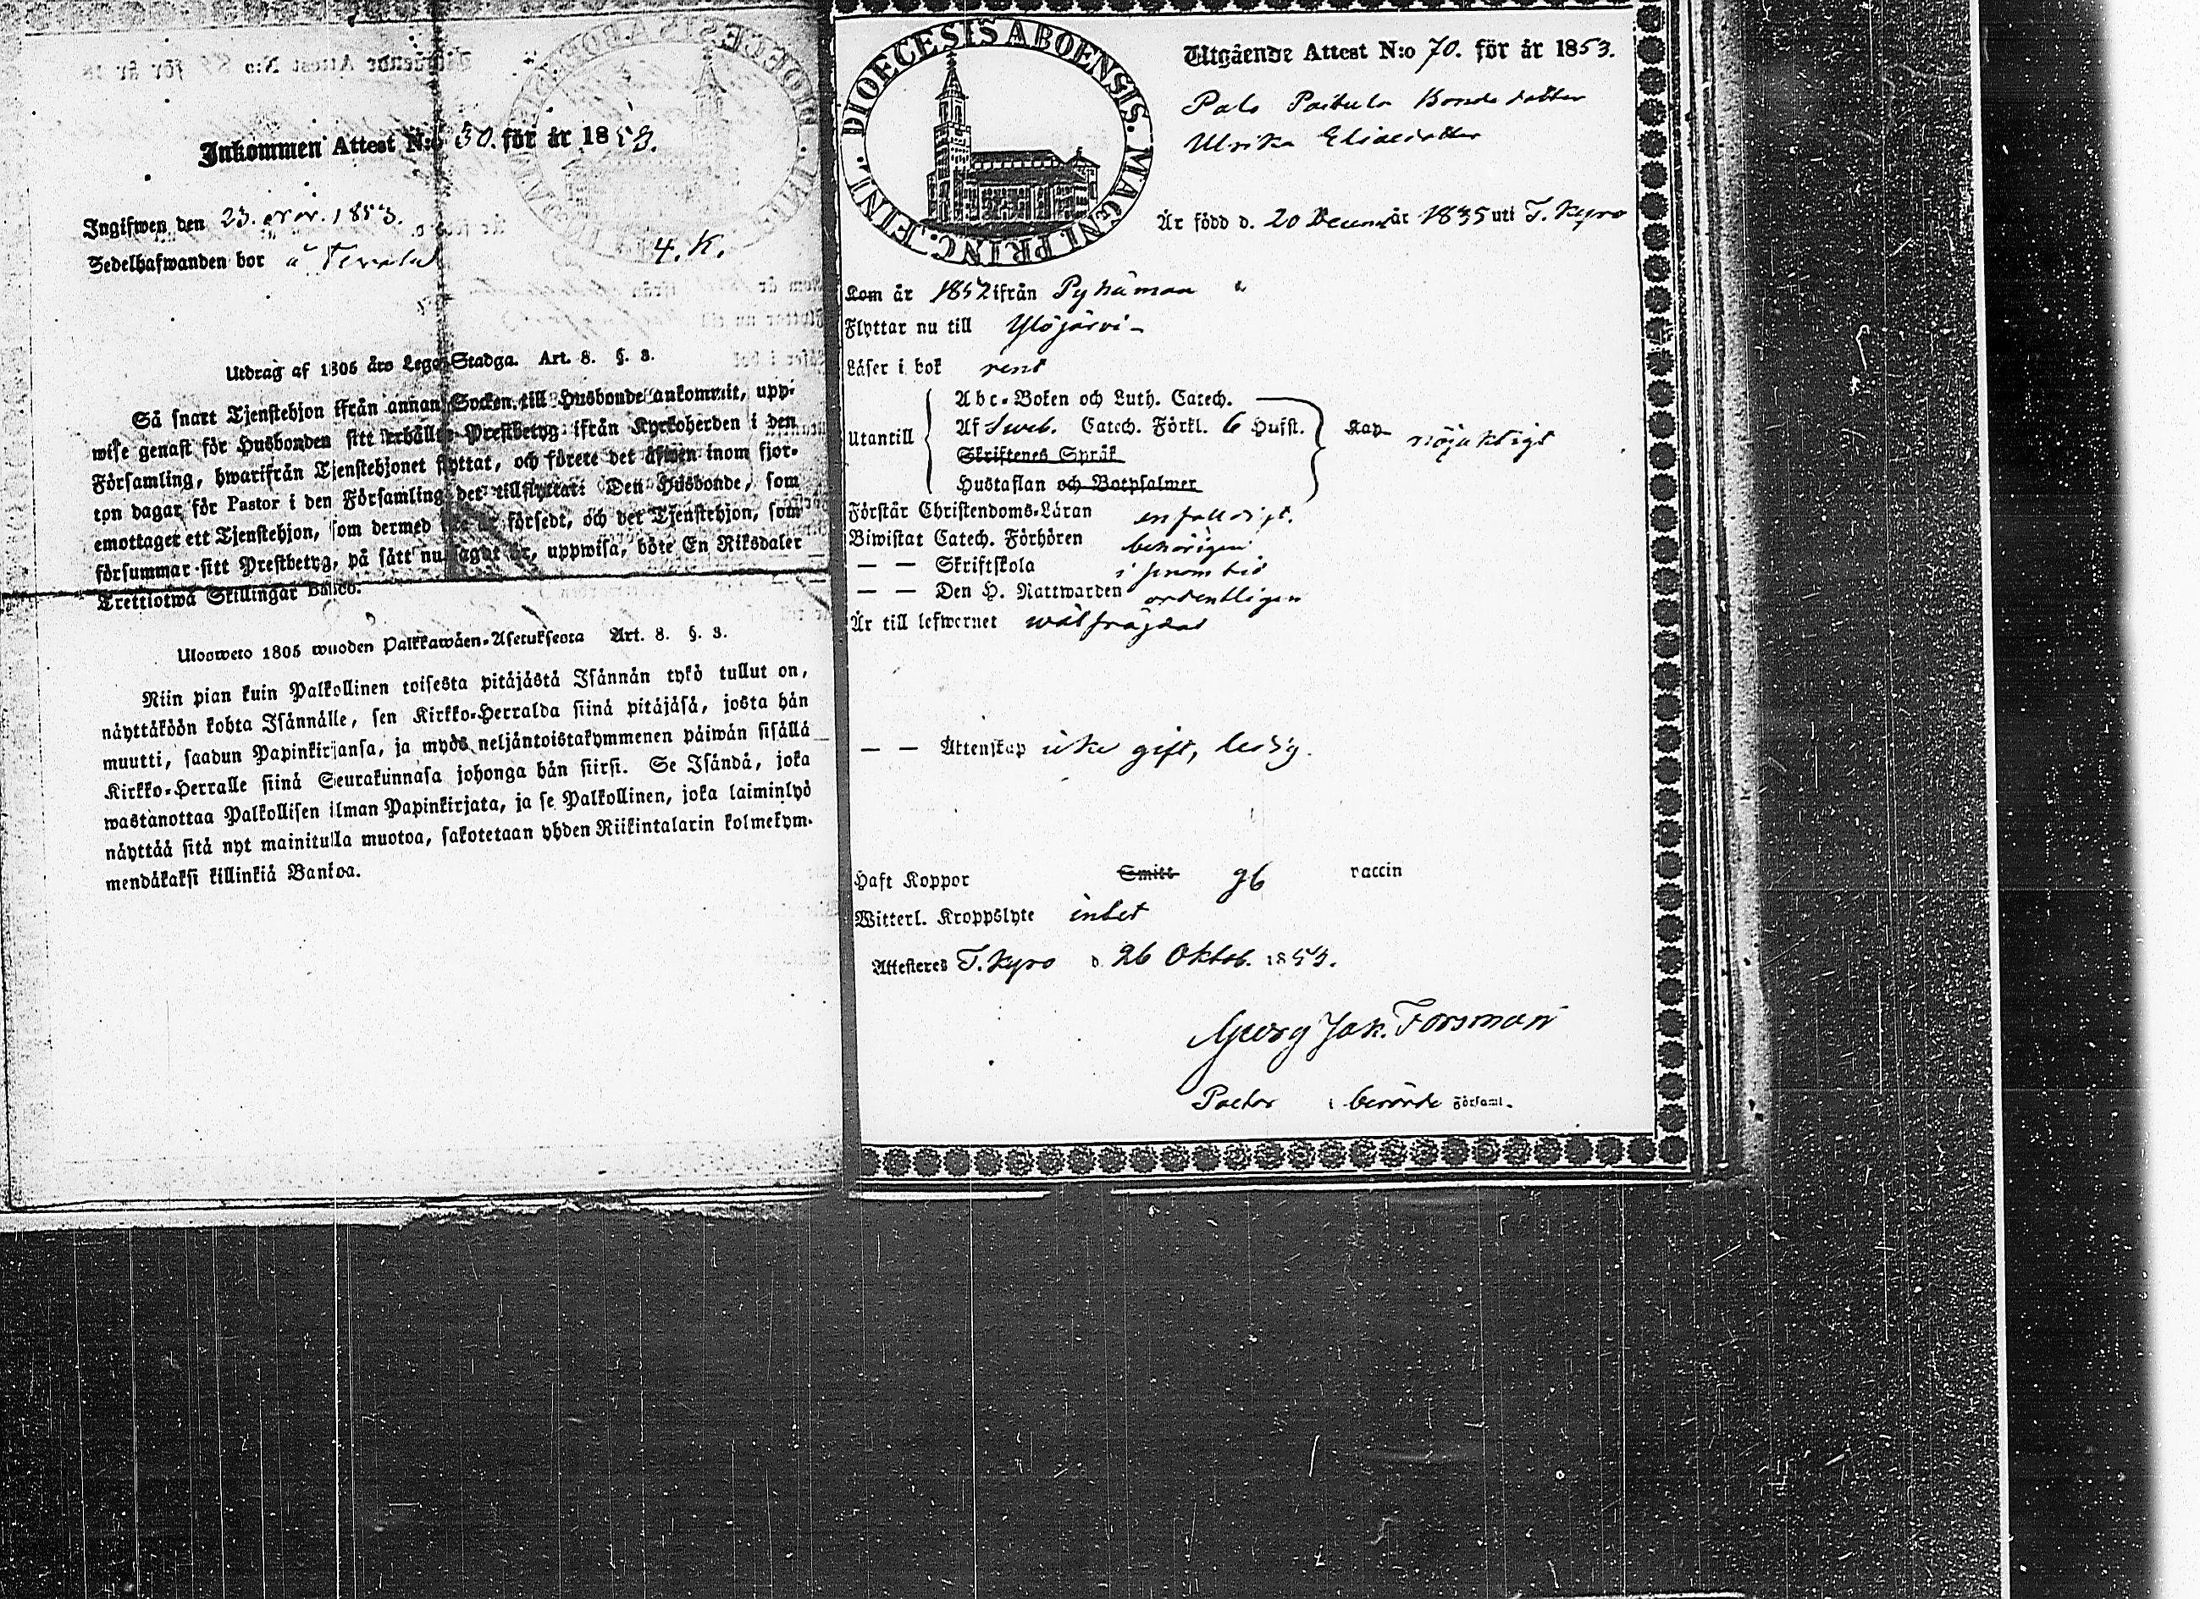 Inkommen Attest N:o 50. för år 1853.
Ingifwen den 23. nov. 1853.
Sedelhafwanden bor å
4. K.
Utdrag af 1805 års Lego-Stadga. Art. 8. §. 3.
Så snart Tjenstehjon ifrån annan Socken till Husbonde ankommit, upp-
wise genast för Husbonden sitt erhållna Prestbetyg ifrån Kyrkoherden i den
Församling, hwarifrån Tjenstehjonet flyttat, och förete det äfwen inom fjor-
ton dagar för Pastor i den Församling det tillflyttat: Den Husbonde, som
emottager ett Tjenstehjon, som dermed icke är försedt, och det Tjenstehjon, som
försummar sitt Prestbetyg, på sätt nu sagdt är, uppwisa, böte En Riksdaler
Trettiotwå Skillingar Banco.
Ulosweto 1805 wuoden Palkkawäen-Asetuksesta Art. 8. §. 3.
Niin pian kuin Palkollinen toisesta pitäjästä Isännän tykö tullut on,
näyttäköön kohta Isännälle, sen Kirkko-Herralda siinä pitäjäsä, josta hän
muutti, saadun Papinkirjansa, ja myös neljäntoistakymmenen päiwän sisällä
Kirkko-Herralle siinä Seurakunnasa johonga hän siirsi. Se Isändä, joka
wastanottaa Palkollisen ilman Papinkirjata, ja se Palkollinen, joka laiminlyö
näyttää sitä nyt mainitulla muotoa, sakotetaan yhden Riikintalarin kolmekym-
mendäkaksi killinkiä Bankoa.
DIOECESIS ABOENSIS. MAGNI. PRINC. FINL.
Utgående Attest N:o 70. för år 1853.
Palo Paitula Bondedotter
Ulrika Eliaedotter
Är född d. 20 Decem år 1835 uti T. Kyro
Kom år 1852 ifrån Pyhämaa
Flyttar nu till Ylöjärvi
Läser i bok rent
Utantill
Abc-Boken och Luth. Catech.
Af Sveb. Catech. Förkl. 6 Hufst. Kap nöjaktigt
Skriftenes Språk
Hustaflan och Botpsalmer
Förstår Christendoms-Läran enfaldigt.
Biwistat Catech. Förhören behörigen
— — Skriftskola i sinom tid
— — Den H. Nattwarden ordentligen
Är till lefwernet wälfräjdad
— — Ättenskap icke gift, ledig.
Haft Koppor Smitt gb vaccin
Witterl. Kroppslyte intet
Attesteres T. Kyro d. 26 Oktob. 1853.
Georg Jak. Forsman
Pastor i berörde Församl.